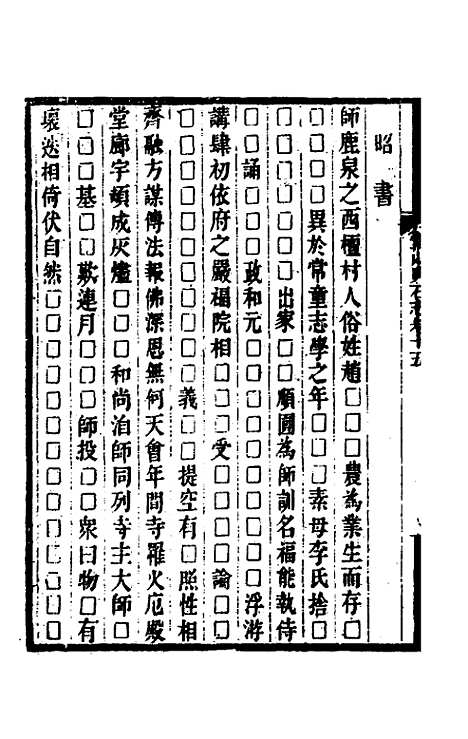 昭書
師鹿泉之西檀村人俗姓趙□□農為業生而存□
□□□□異於常童志學之年□□□素母李氏捨□
□□□□□□□出家□□願圓為師訓名福能執侍
□□誦□□□□政和元□□□□□□□□□浮游
講肆初依府之嚴福院相□□□受□□□□論□□
□□□□□□□□□□義□□提空有□□照性相
齊融方謀傳法報佛深恩無何天會年間寺罹火厄殿
堂廊宇頓成灰燼□□□和尚洎師同列寺主大師□
□□□□基□□歎連月□□□師投□□衆曰物□有
壞迭相倚伏自然□□□□□□□□□□□□□□